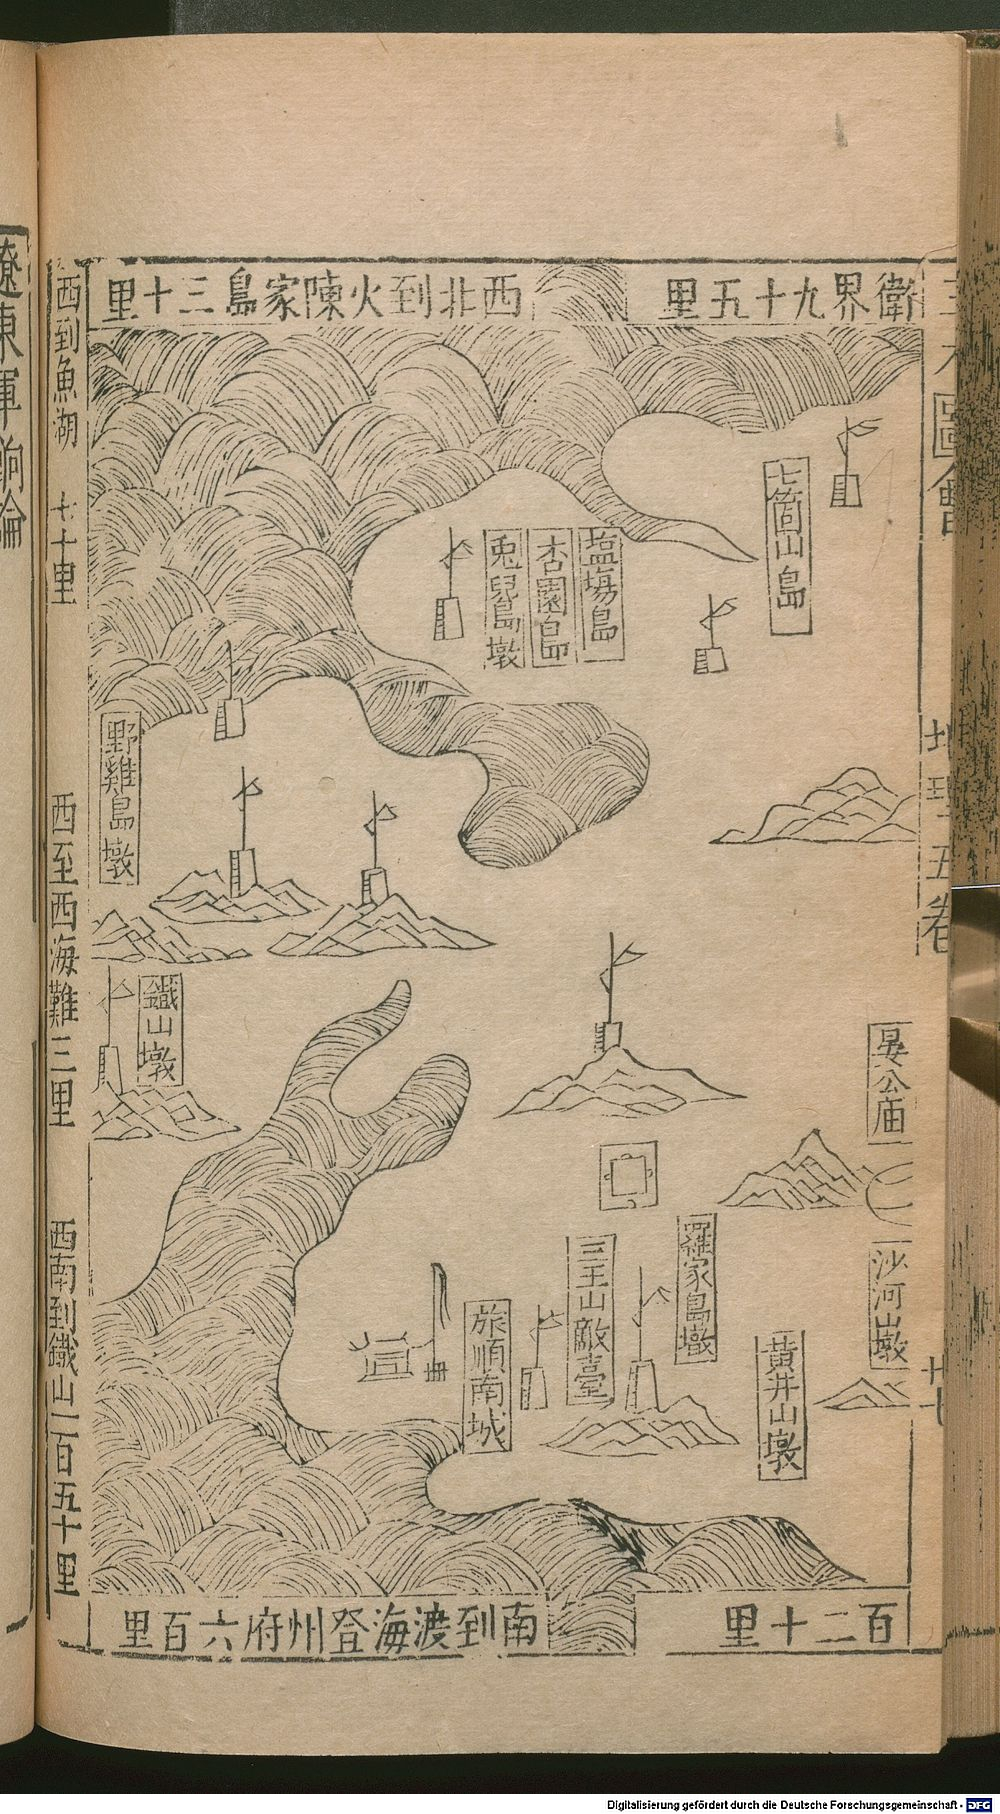 衛界九十五里
西北到火陳家島三十里
西到魚湖 七十里
西至西海難三里
西南到鐵山一百五十里
七箇山島
塩塲島
杏園島
兎兒島墩
野雞島墩
鐵山墩
晏公庙
沙河山墩
黃井山墩
羅家島墩
三王山敵臺
旅順南城
百二十里
南到渡海登州府六百里
圖會
地理五卷
廿七
遼東軍餉論
Digitalisierung gefördert durch die Deutsche Forschungsgemeinschaft - DFG